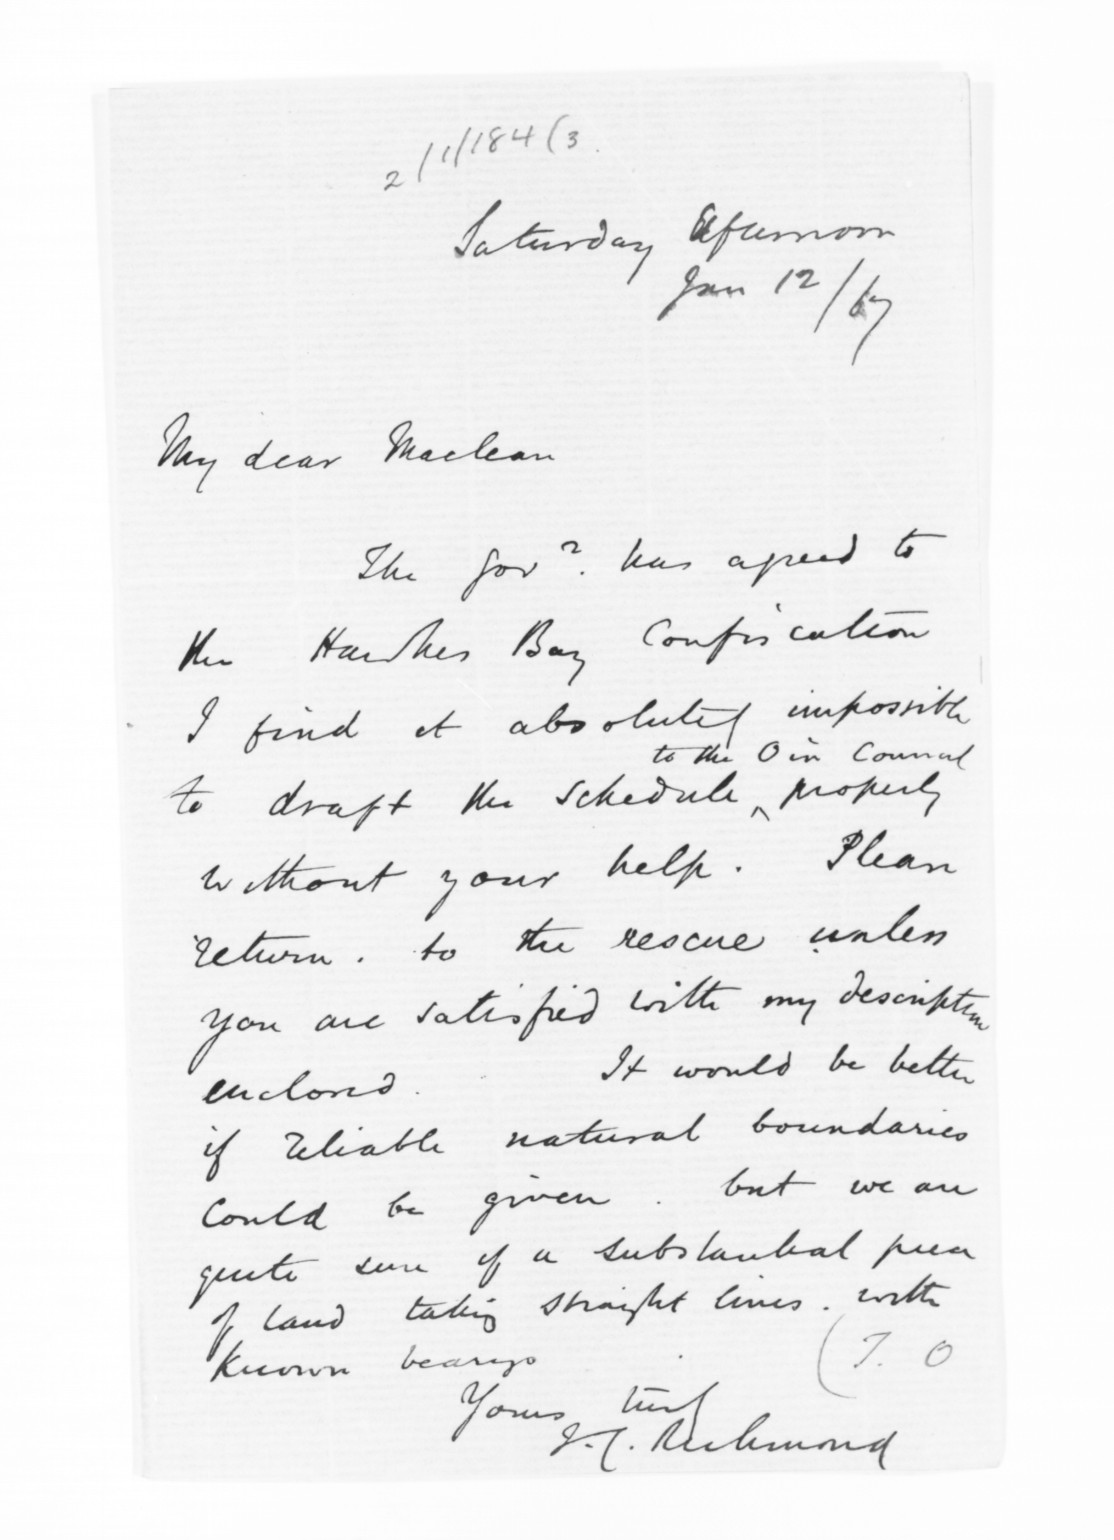 2/1/184(3.
Saturday Afternoon
Jan 12/67
My dear Maclean
The Govr. has agreed to
the Hawkes Bay Confiscation
I find it absolutely impossible
to the O in Council
to draft the schedule ^ properly
without your help. Please
return. to the rescue unless
you are satisfied with my description
enclosed. It would be better
if reliable natural boundaries
could be given. but we are
quite sure of a substantial piece
of land taking straight lines. with
known bearings
(T. O
Yours truly
J.C. Richmond